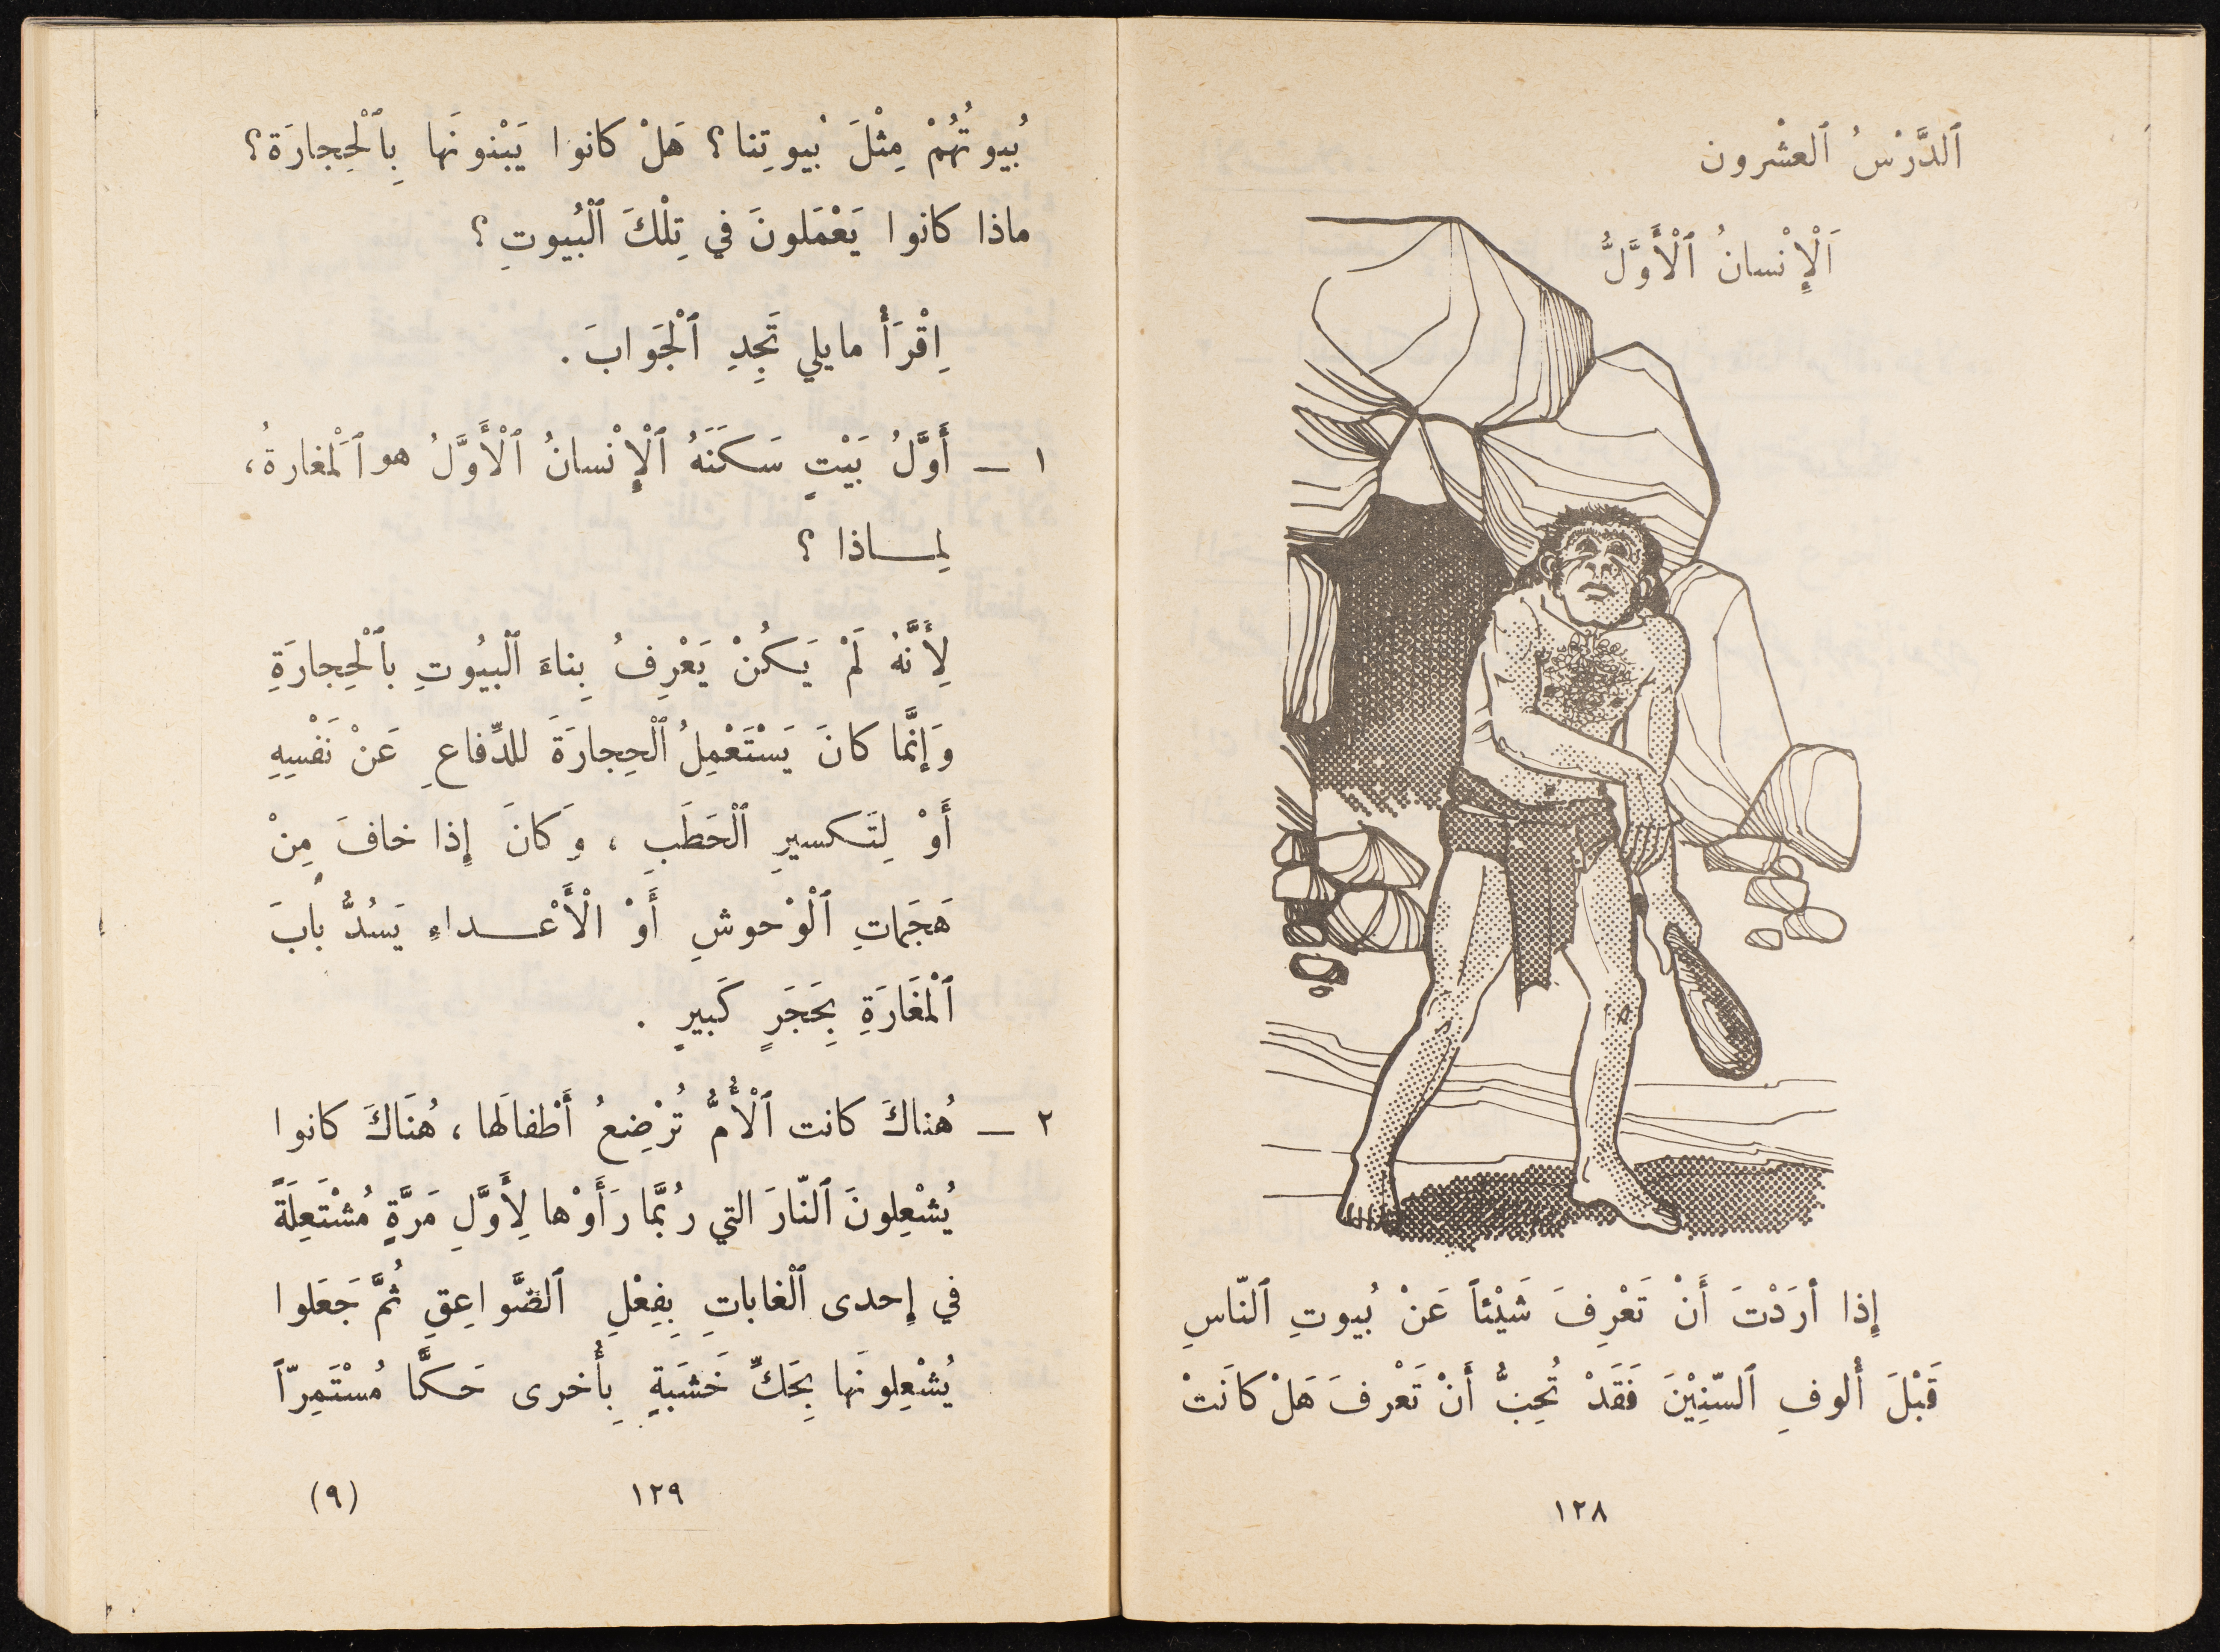 ٱلدَّرْسُ ٱلعشْرون
اَلْإِنْسانُ ٱلْأَوَّلُ
إِذا أَرَدْتَ أَنْ تَعْرِفَ شَيْئاً عَنْ بُيوتِ ٱلنّاسِ
قَبْلَ أُلوفِ ٱلسّنِيْنَ فَقَدْ تُحِبُّ أَنْ تَعْرفَ هَلْ كانَتْ
١٢٨
بُيوتُهُمْ مِثْلَ بُيوتِنا؟ هَلْ كانوا يَبْنونَها بِٱلْحِجارَة؟
ماذا كانوا يَعْمَلونَ في تِلْكَ ٱلْبُيوتِ؟
اِقْرَأْ مايلي تَجِدِ ٱلْجَوابَ.
١ – أَوَّلُ بَيْتٍ سَكَنَهُ ٱلْإِنْسانُ ٱلْأَوَّلُ هو ٱلْمَغارةُ،
لِمـاذا؟
لِأَنَّهُ لَمْ يَكُنْ يَعْرِفُ بِناءَ ٱلْبيُوتِ بٱلْحِجارَةِ
وَإنَّما كانَ يَسْتَعْمِلُ ٱلْحِجارَةَ للدِّفاعِ عَنْ نَفْسِهِ
أَوْ لِتَكسيرِ ٱلْحَطَبِ، وَكانَ إِذا خافَ مِنْ
هَجَماتِ ٱلْوْحوشِ أَوْ الْأَعْـداءِ يَسُدُّ بابَ
ٱلْمَغَارَةِ بِحَجَرٍ كَبيرٍ.
٢ – هُناكَ كانت ٱلْأُمُّ تُرْضِعُ أَطْفالَها، هُنَاكَ كانوا
يُشْعِلونَ ٱلنّارَ التي رُبَّما رَأَوْها لِأَوَّلِ مَرَّةٍ مُشْتَعِلَةً
في إِحدى ٱلْغاباتِ بِفِعْلِ ٱلصَّواعِقِ ثُمَّ جَعَلوا
يُشْعِلونَها بِحَكِّ خَشَبَةٍ بِأُخرى حَكًّا مُسْتَمِرّاً
١٢٩
(٩)